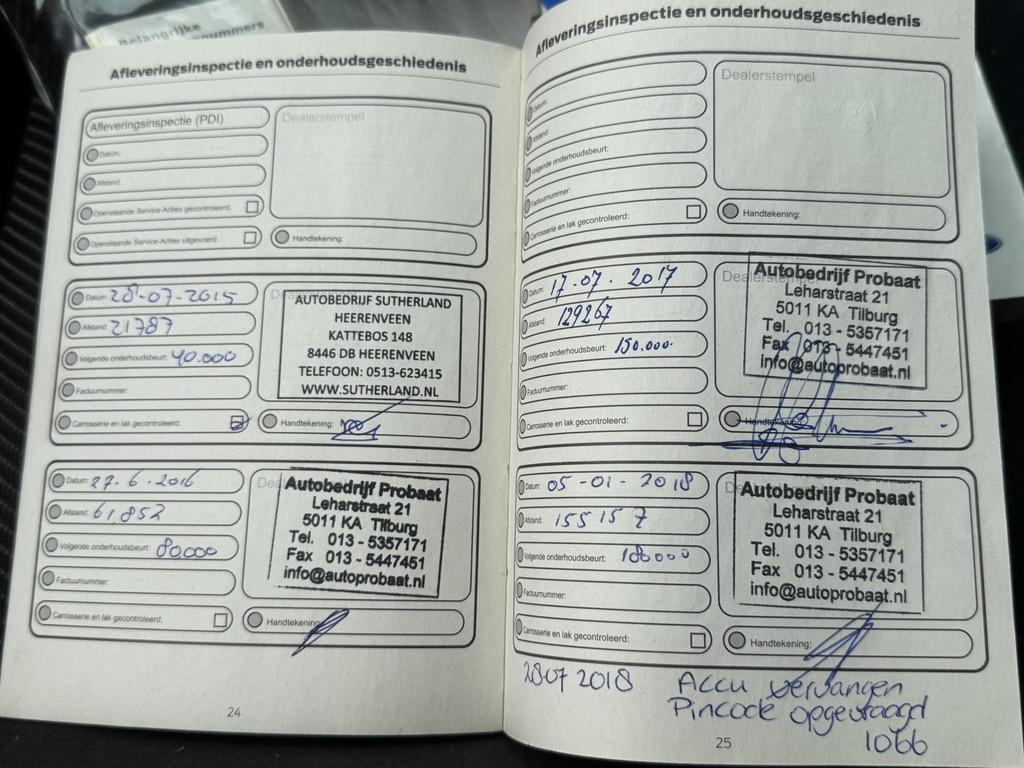 Belangrijke
nummers
Afleveringsinspectie en onderhoudsgeschiedenis
Afleveringsinspectie (PDI)
Datum:
Afstand:
Openstaande Service-Acties gecontroleerd:
Openstaande Service-Acties uitgevoerd:
Dealerstempel
Handtekening:
Datum: 28-07-2015
Afstand: 21787
Volgende onderhoudsbeurt: 40.000
Factuurnummer:
Carrosserie en lak gecontroleerd:
AUTOBEDRIJF SUTHERLAND
HEERENVEEN
KATTEBOS 148
8446 DB HEERENVEEN
TELEFOON: 0513-623415
WWW.SUTHERLAND.NL
Handtekening:
Datum: 27-6-2016
Afstand: 61,852
Volgende onderhoudsbeurt: 80000
Factuurnummer:
Carrosserie en lak gecontroleerd:
Autobedrijf Probaat
Leharstraat 21
5011 KA Tilburg
Tel. 013 - 5357171
Fax 013 - 5447451
info@autoprobaat.nl
Handtekening:
24
Afleveringsinspectie en onderhoudsgeschiedenis
Datum:
Afstand:
Volgende onderhoudsbeurt:
Factuurnummer:
Carrosserie en lak gecontroleerd:
Dealerstempel
Handtekening:
Datum: 17-07-2017
Afstand: 129267
Volgende onderhoudsbeurt: 150.000
Factuurnummer:
Carrosserie en lak gecontroleerd:
Autobedrijf Probaat
Leharstraat 21
5011 KA Tilburg
Tel. 013 - 5357171
Fax 013 - 5447451
info@autoprobaat.nl
Handtekening:
Datum: 05-01-2018
Afstand: 155157
Volgende onderhoudsbeurt: 180000
Factuurnummer:
Carrosserie en lak gecontroleerd:
Autobedrijf Probaat
Leharstraat 21
5011 KA Tilburg
Tel. 013 - 5357171
Fax 013 - 5447451
info@autoprobaat.nl
Handtekening:
2807 2018 Accu vervangen
Pincode opgevraagd
1066
25